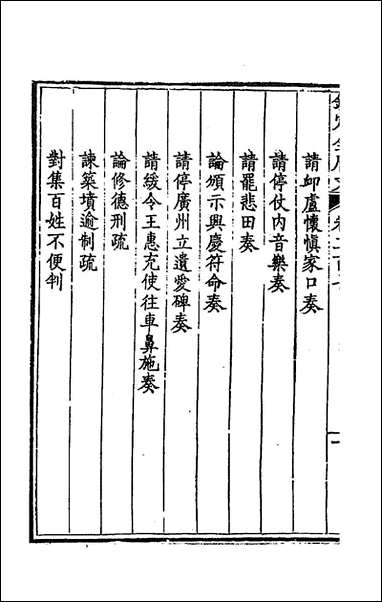 請䘏盧懷慎家口奏
請停仗内音樂奏
請罷悲田奏
論頒示興慶符命奏
請停廣州立遺愛碑奏
請緩令王惠充使往車鼻施奏
論修德刑疏
諫築墳逾制疏
對集百姓不便判